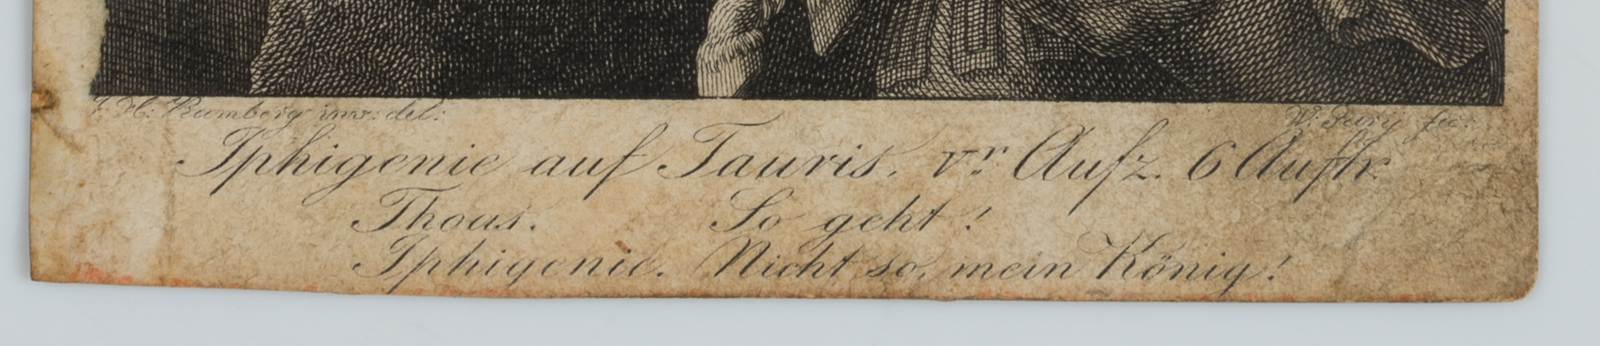 J. H. Ramberg inv: del: W. Jury fec:
Iphigenie auf Tauris. Vr Aufz. 6 Auftr.
Thoas. So geht!
Iphigenie. Nicht so, mein König!